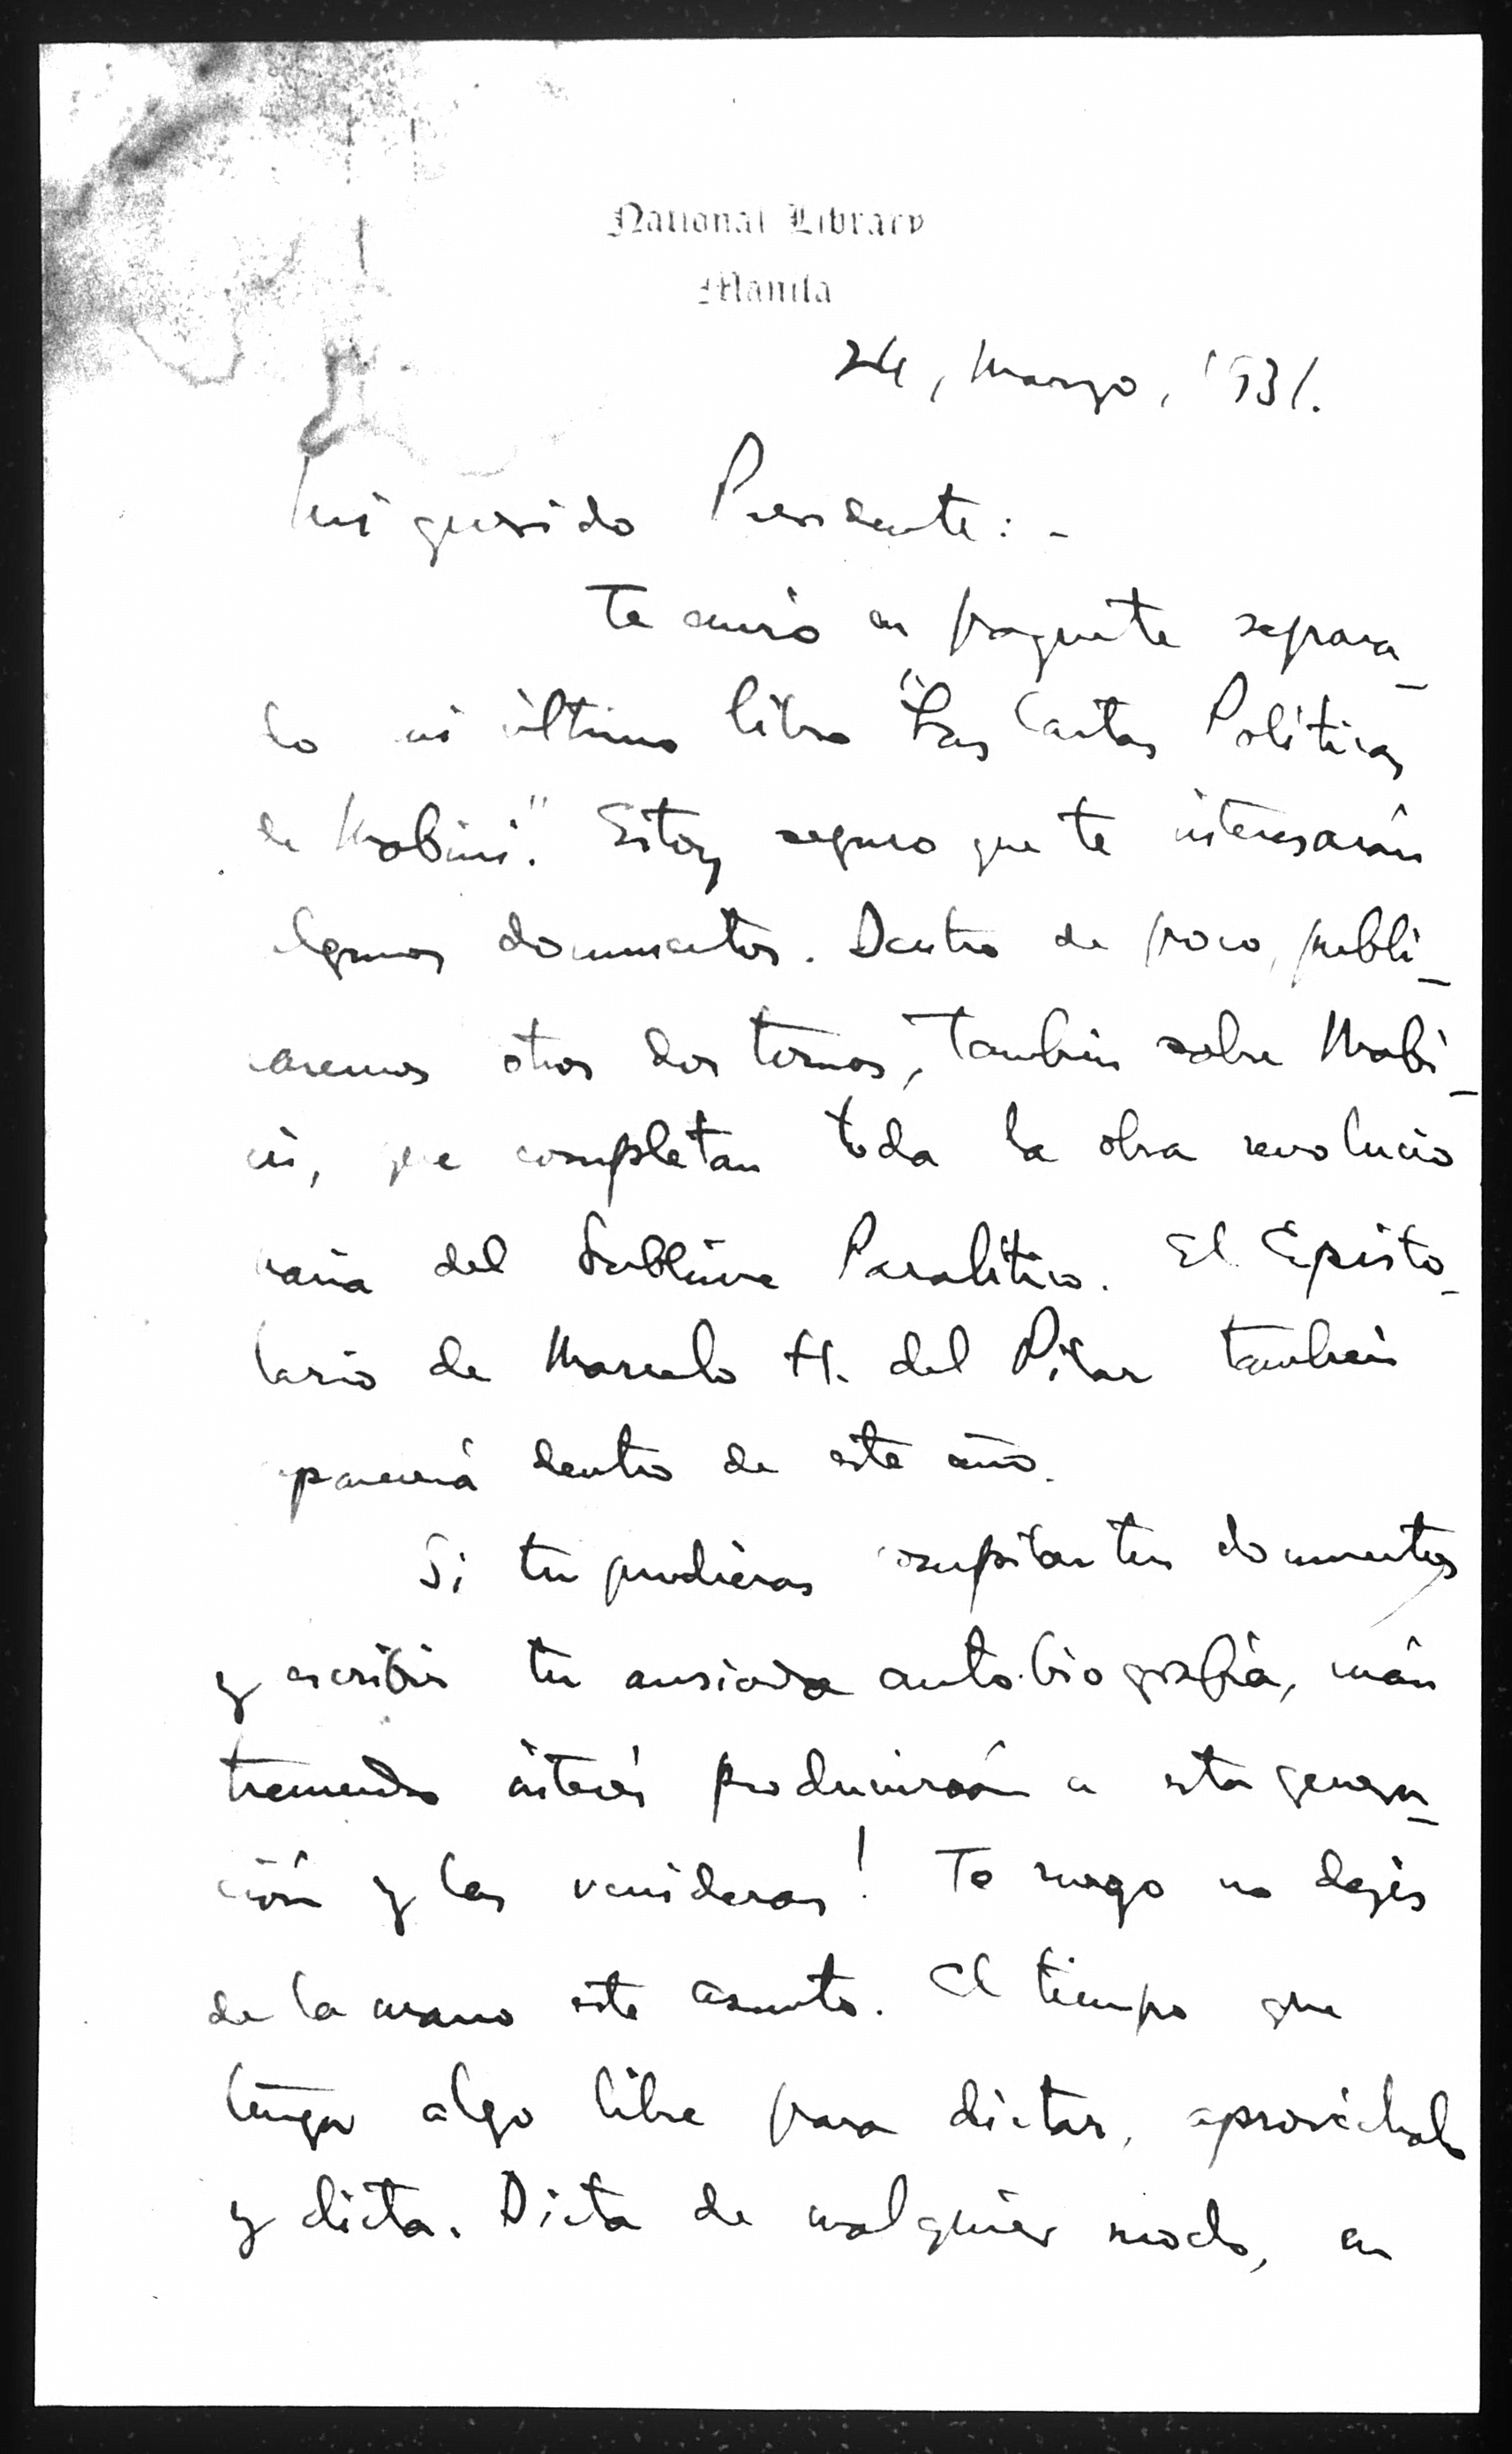 National Library
Manila
24, Marzo, 1931.
Mi querido Presidente: -
Te envio en paquete separa-
do mi último libro "Las Cartas Políticas
de Mabini." Estoy seguro que te interesarán
algunos documentos. Dentro de poco, publi-
caremos otros dos tomos, también sobre Mabi-
ni, que completan toda la obra revolucio
naria del Sublime Paralítico. El Episto-
lario de Marcelo H. del Pilar también
aparecerá dentro de este año.
Si tu pudieras compilar tus documentos
y escribir tu ansiada autobiografía, cuán
tremendo interés produciría a esta genera-
ción y las venideras! Te ruego no dejes
de la mano este asunto. El tiempo que
tengas algo libre para dictar, aprovéchalo
y dicta. Dicta de cualquier modo, en